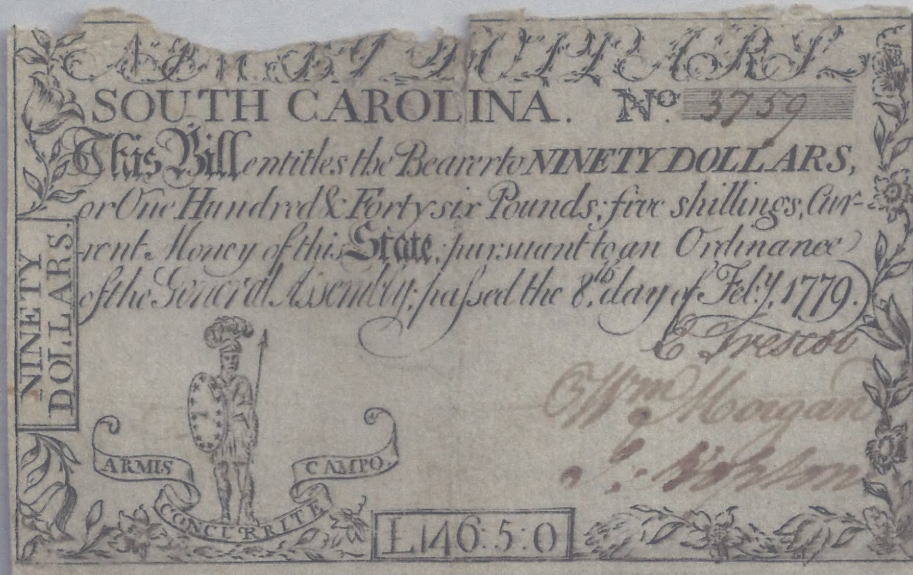 SOUTH CAROLINA. No. 3759
This Bill entitles the Bearer to NINETY DOLLARS,
or One Hundred & Forty six Pounds, five shillings, Cur-
rent Money of this State; pursuant to an Ordinance
of the General Assembly; passed the 8th. day of Feb:y. 1779.
NINETY
DOLLARS.
E Trescot
Wm Morgan
ARMIS CAMPO
CONCURRITE
L146:5:0